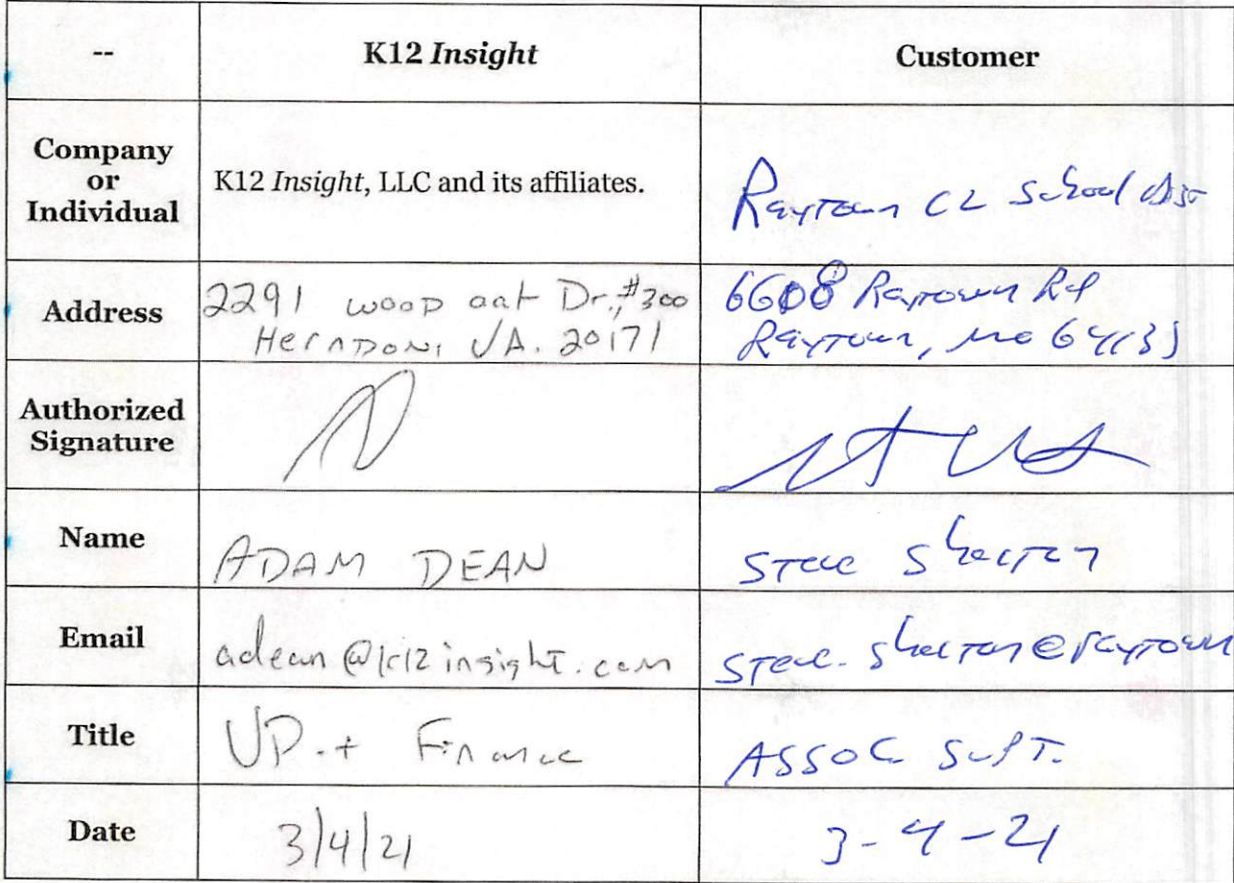 -- K12 Insight Customer
Company
or
Individual
K12 Insight, LLC and its affiliates.
Raytown C2 School Dist
Address
2291 wood oak Dr., #300
Herndon, VA. 20171
6608 Raytown Rd
Raytown, Mo 64133
Authorized
Signature
Name ADAM DEAN Steve Shelton
Email adean@k12insight.com Steve.Shelton@raytown
Title VP. Finance Assoc Supt.
Date 3/4/21 3-4-21